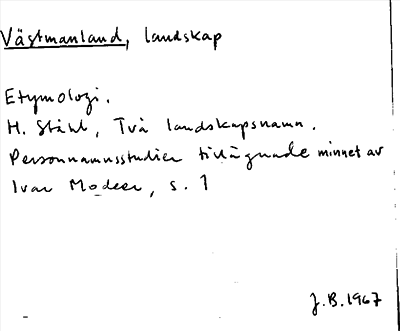 Västmanland, landskap
Etymologi.
H. Ståhl, Två landskapsnamn.
Personnamnsstudier tillägnade minnet av
Ivar Modéer, s. 1
J.B. 1967